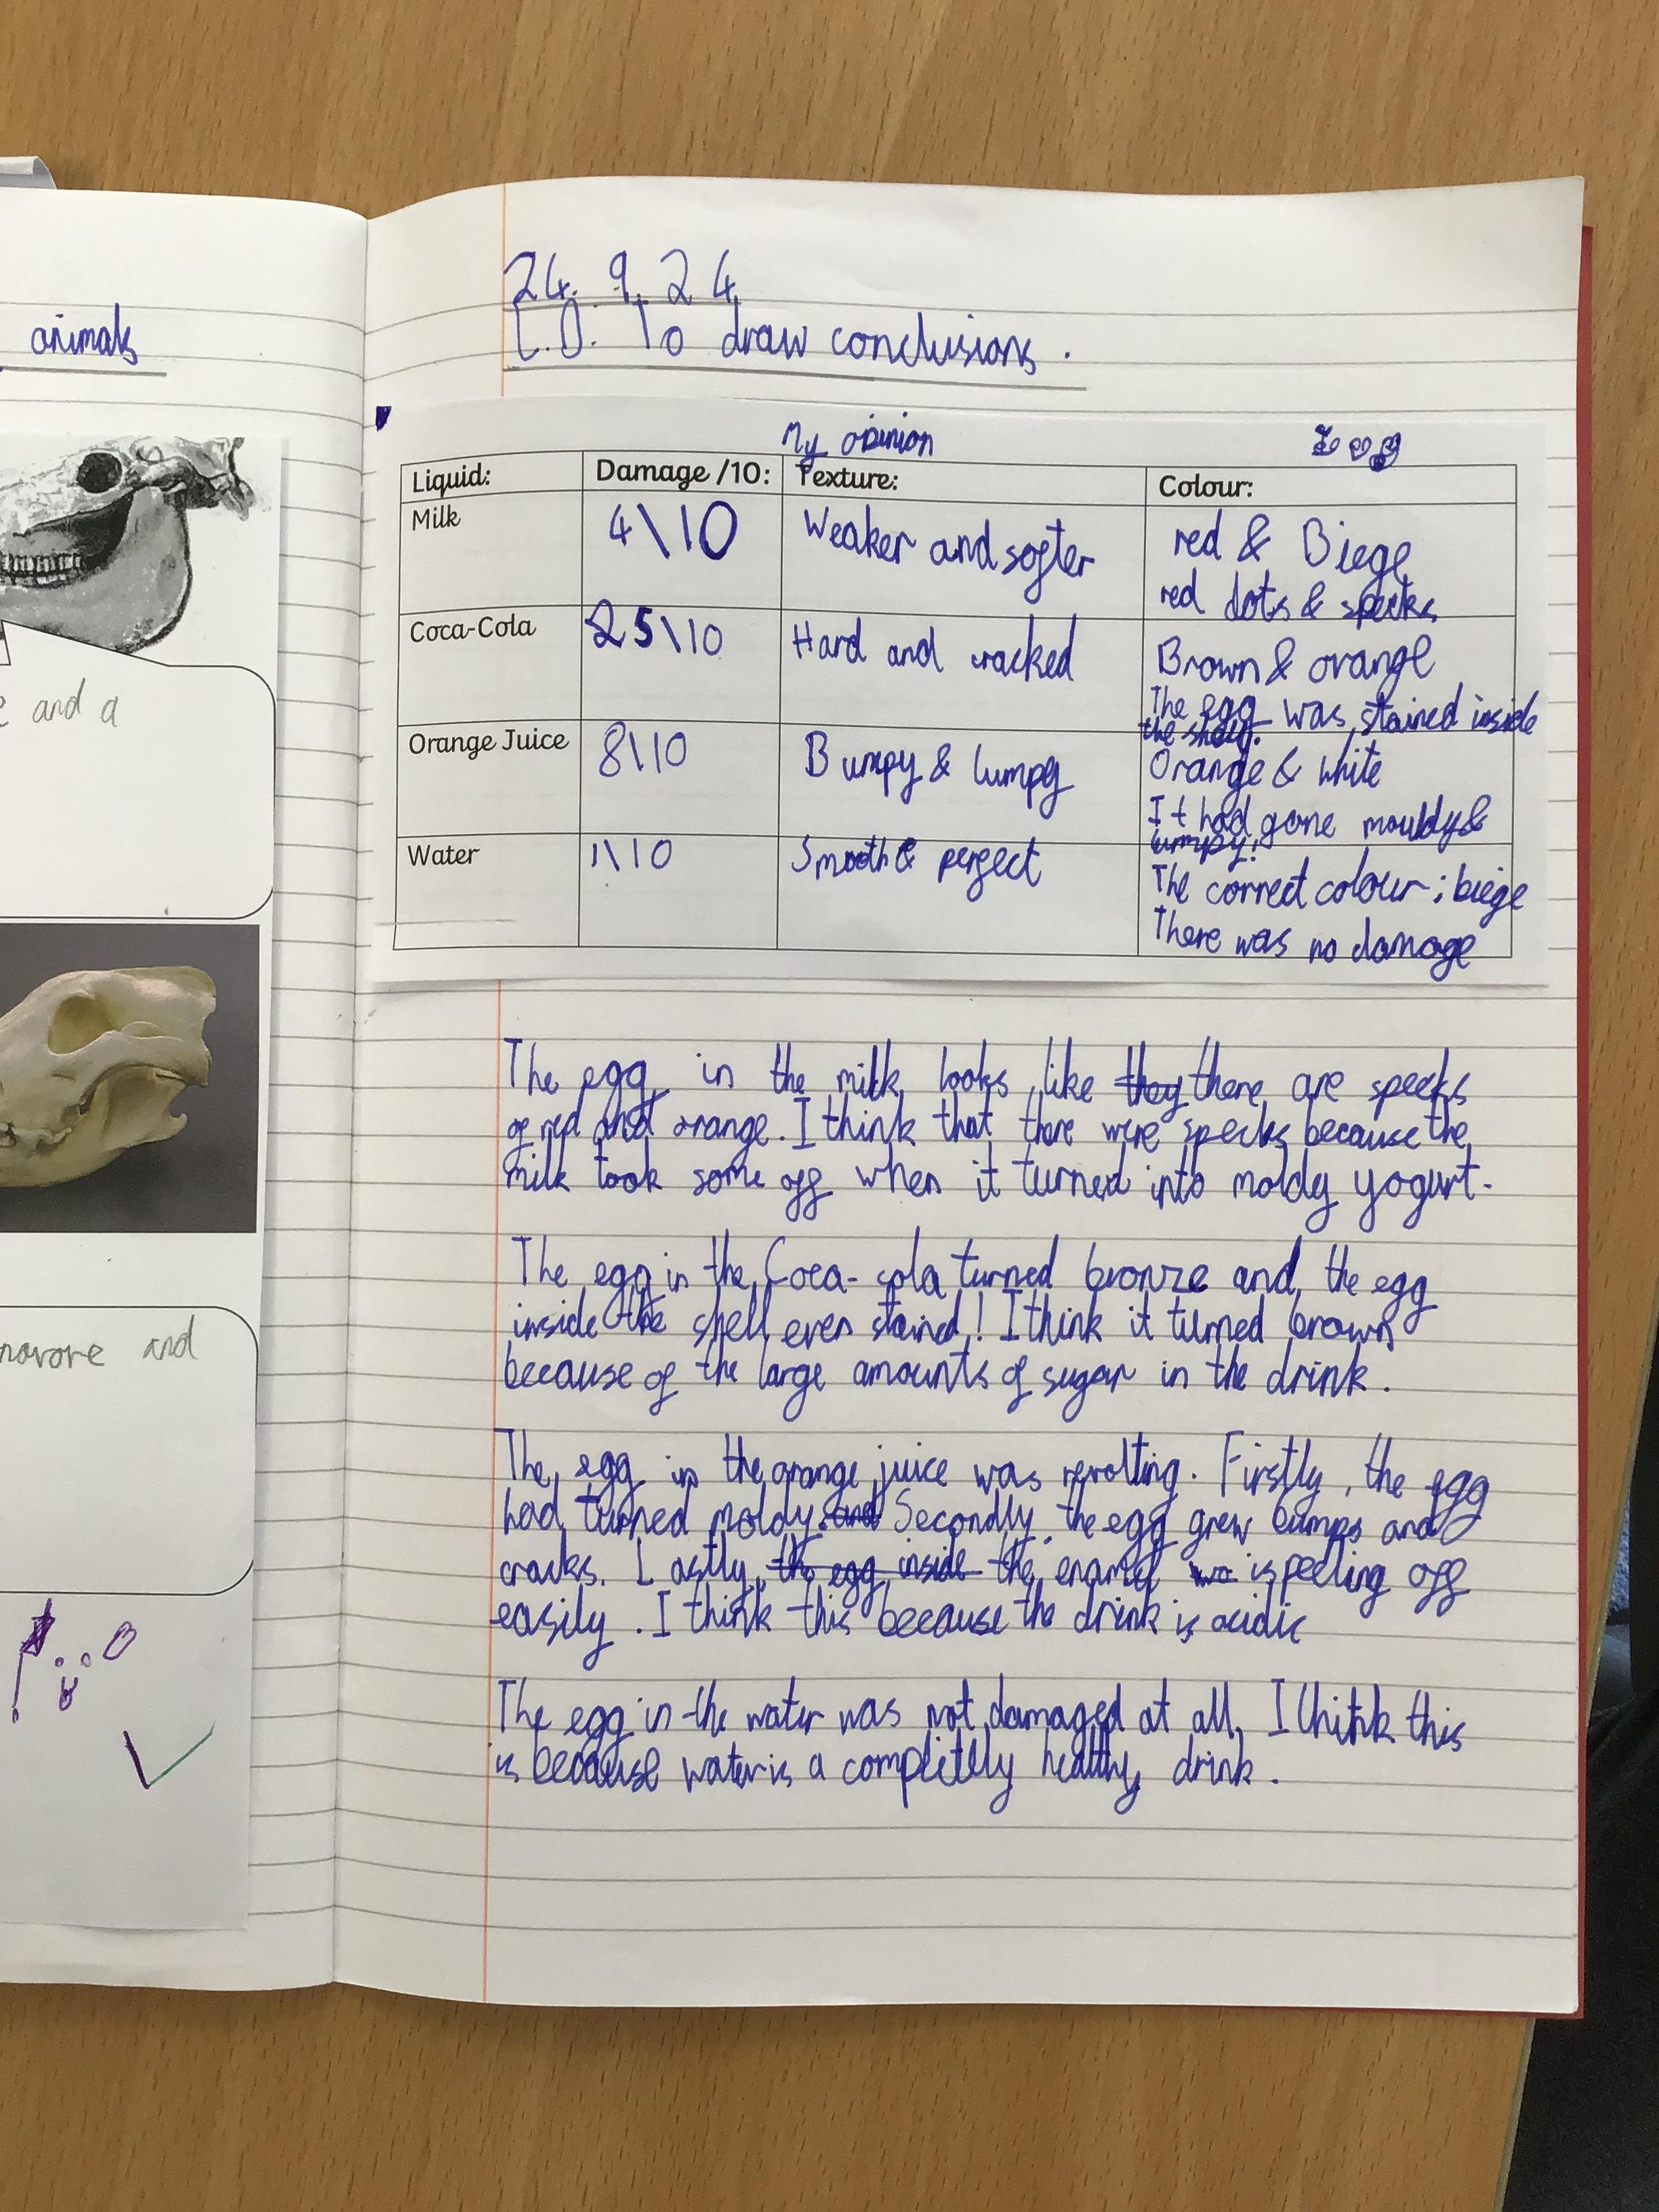 animals
e and a
navore and
24.9.24
L.O. To draw conclusions.
My opinion
Liquid: Damage /10: Texture: Colour:
Milk 4\10 Weaker and softer red & Biege
red dots & specks
Coca-Cola 25\10 Hard and cracked Brown & orange
The egg was stained inside
the shell.
Orange Juice 8\10 Bumpy & lumpy Orange & white
It had gone mouldy &
lumpy!
Water 1\10 Smooth & perfect The correct colour; biege
There was no damage
The egg in the milk looks like they there are specks
of red and orange. I think that there were specks because the
milk took some off when it turned into moldy yogurt.
The egg in the Coca-cola turned bronze and the egg
inside the shell even stained! I think it turned brown
because of the large amounts of sugar in the drink.
The egg in the orange juice was revolting. Firstly, the egg
had turned moldy. and Secondly, the egg grew bumps and
cracks. Lastly, the egg inside the enamel is peeling off
easily. I think this because the drink is acidic
The egg in the water was not damaged at all, I thitnk this
is because water is a complitely healthy drink.